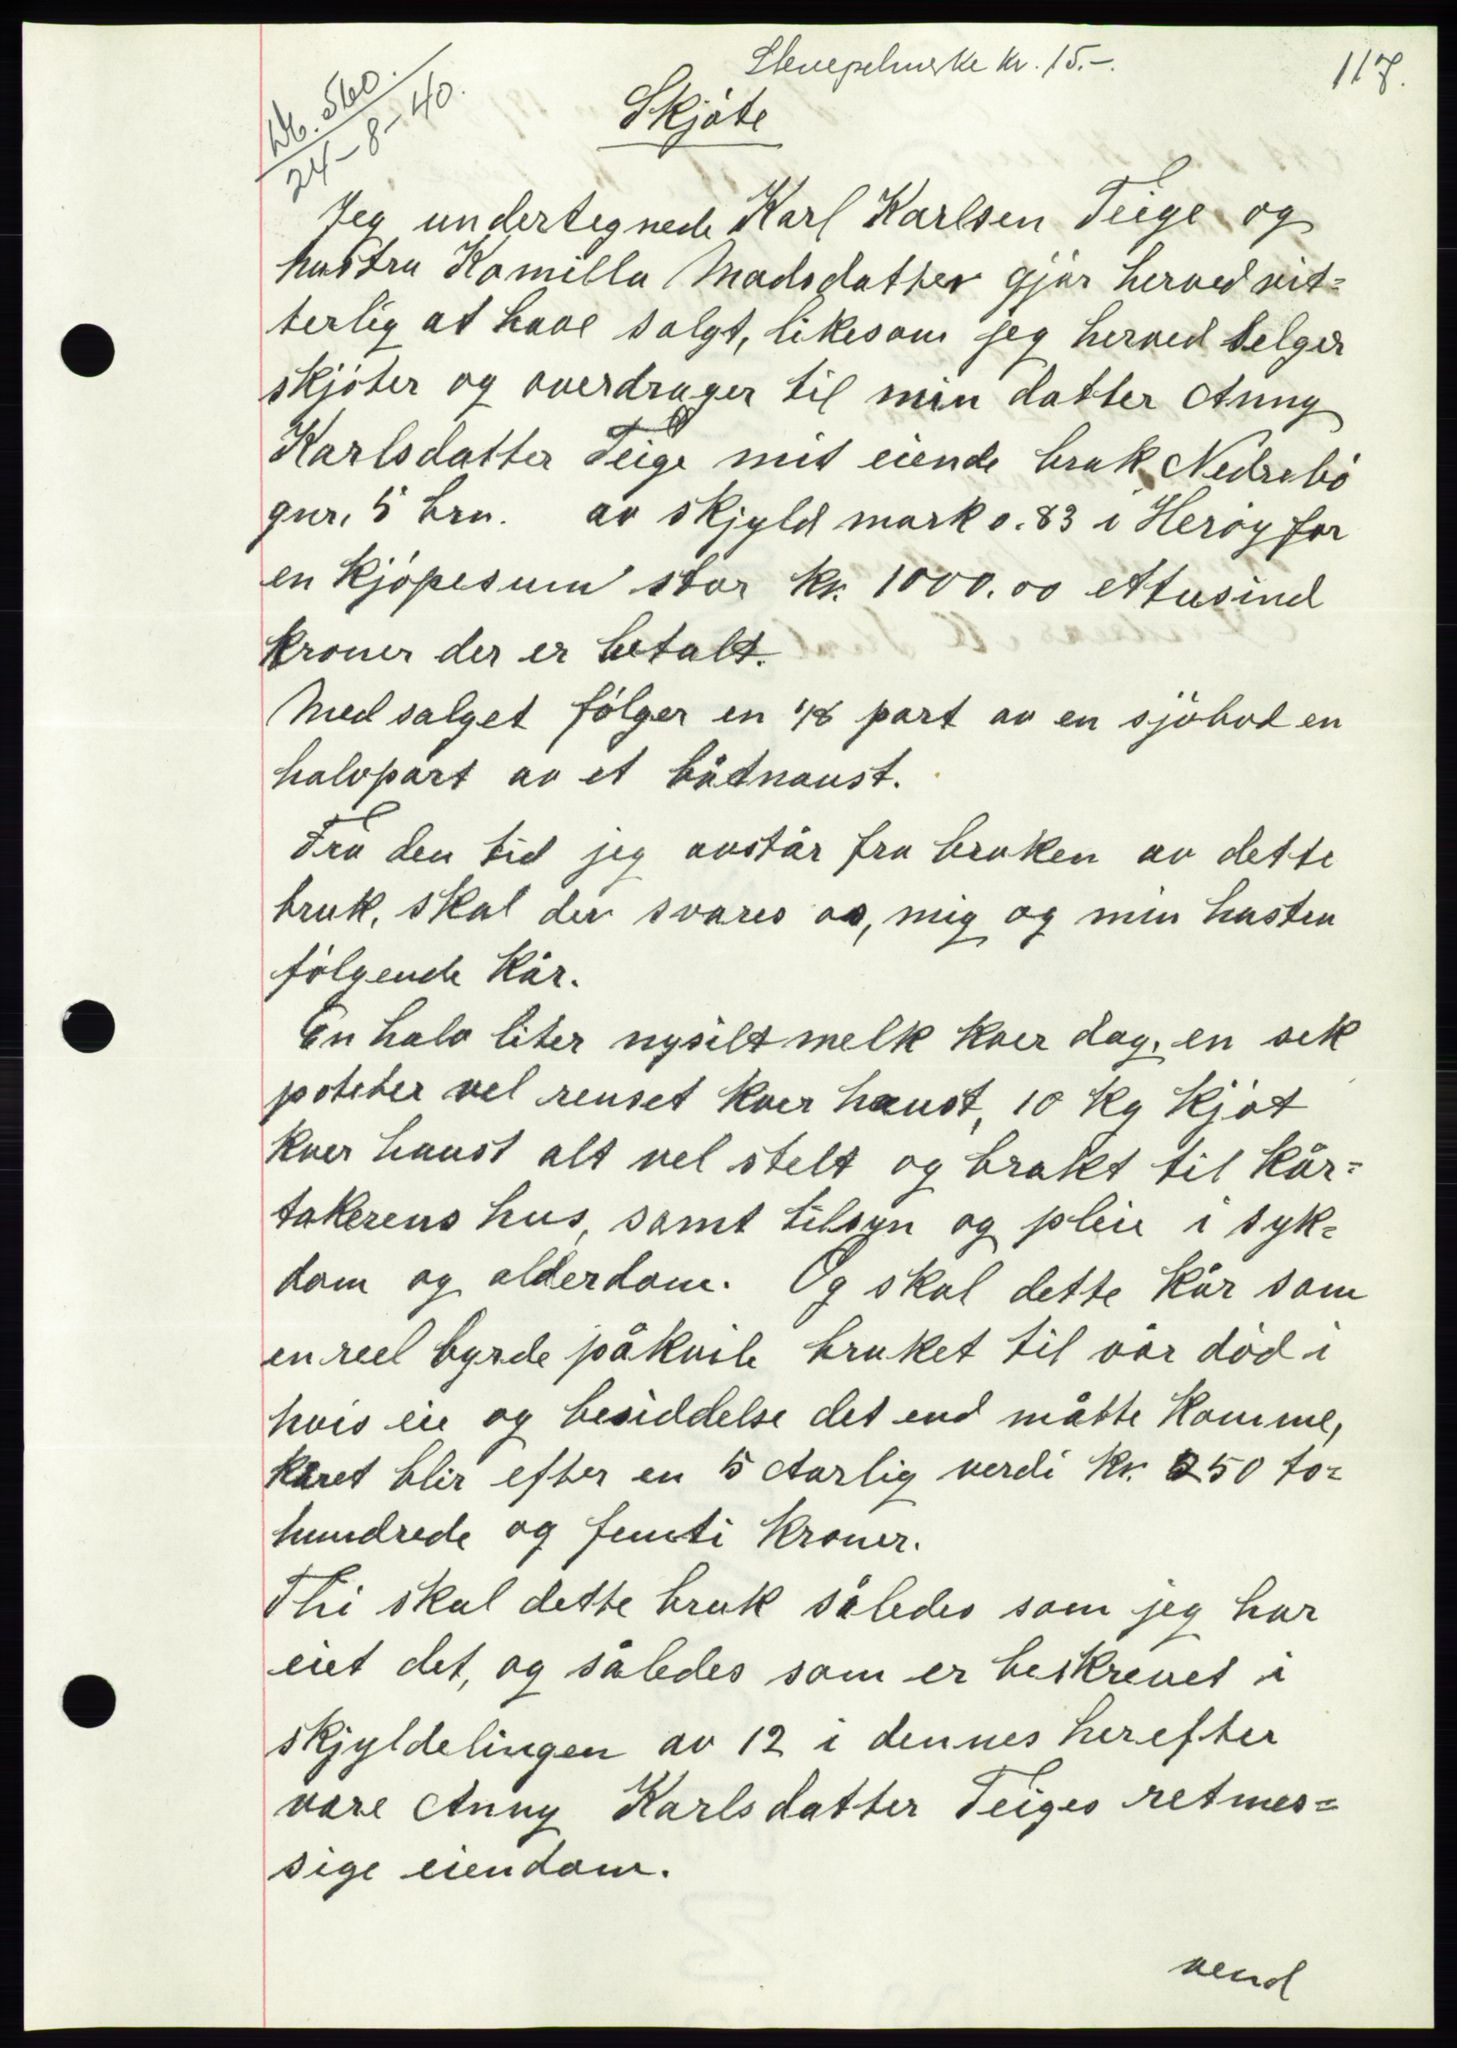 Stempelmerke kr. 15.-.
117.
Nr. 560.
24-8-40.
Skjöte
Jeg undertegnede Karl Karlsen Teige og
hustru Kamilla Madsdatter gjör herved vit=
terlig at have solgt, likesom jeg herved selger
skjöter og overdrager til min datter Anny
Karlsdatter Teige mit eiende bruk Nedrebö
gnr. 5 brn. av skjyld mark o.83 i Heröy for
en kjöpesum stor kr. 1000.00 ettusind
kroner der er betalt.
Med salget fölger en 1/8 part av en sjöbod en
halvpart av et båtnaust.
Fra den tid jeg avstår fra bruken av dette
bruk, skal der svares os, mig og min hustru
fölgende kår.
En halv liter nysilt melk kver dag, en sek
poteter vel renset kver haust, 10 kg kjöt
kver haust alt vel stelt og brakt til kår=
takerens hus, samt tilsyn og pleie i syk=
dom og alderdom. Og skal dette kår som
en reel byrde påkvile bruket til vår död i
hvis eie og besiddelse det end måtte komme,
karet blir efter en 5 Aarlig verdi kr. 250 to=
hundrede og femti kroner.
Thi skal dette bruk således som jeg har
eiet det, og således som er beskrevet i
skjyldelingen av 12 i dennes herefter
vare Anny Karlsdatter Teiges retmes=
sige eiendom.
vend